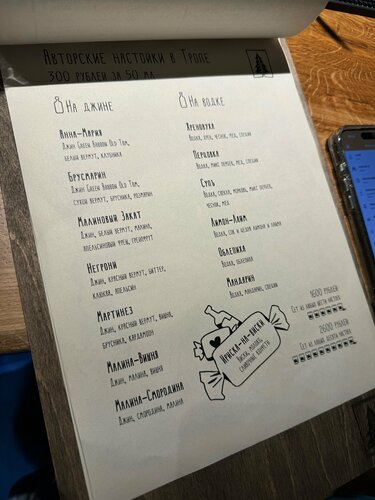 Авторские настойки в Тропе
300 рублей за 50 мл
На джине
Анна-Мария
Джин Green Baboon Old Tom,
белый вермут, калина
Брусмарин
Джин Green Baboon Old Tom,
сухой вермут, брусника, розмарин
Малиновый Закат
Джин, белый вермут, малина,
апельсиновый фреш, грейпфрут
Негрони
Джин, красный вермут, биттер,
клюква, апельсин
Мартинез
Джин, красный вермут, вишня,
брусника, кардамон
Малина-Вишня
Джин, малина, вишня
Малина-Смородина
Джин, смородина, малина
На водке
Хреновуха
Водка, хрен, чеснок, мёд, специи
Перцовка
Водка, микс перцев, мёд, специи
Супъ
Водка, свекла, морковь, микс перцев,
чеснок, мёд
Лимон-Лайм
Водка, сок и цедра лимона и лайма
Облепиха
Водка, облепиха
Мандарин
Водка, мандарин, специи
Ириска-на-виски
Виски, молоко,
сливочные конфеты
1600 рублей
Сет из любых шести настоек
2600 рублей
Сет из любых десяти настоек